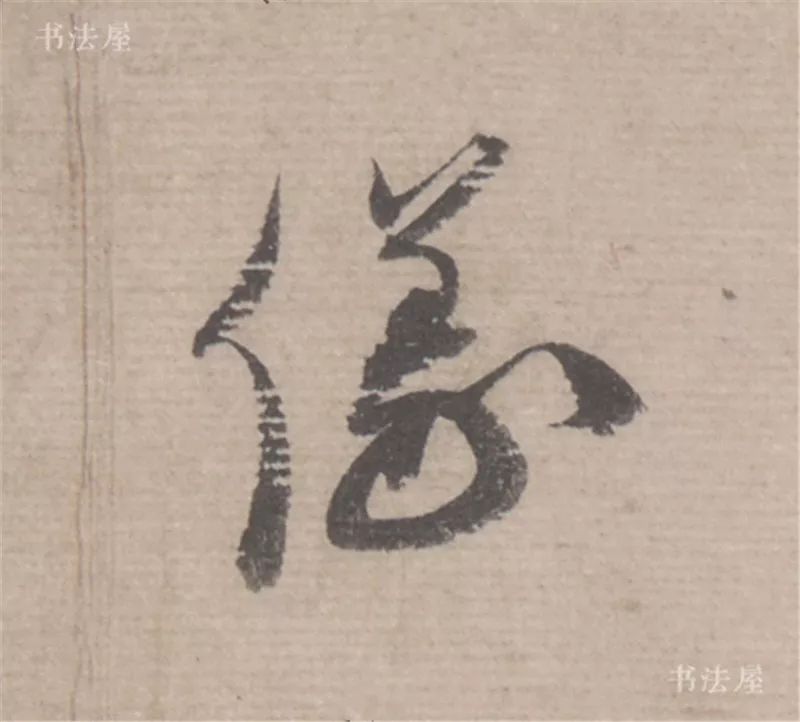 书法屋
儀
书法屋